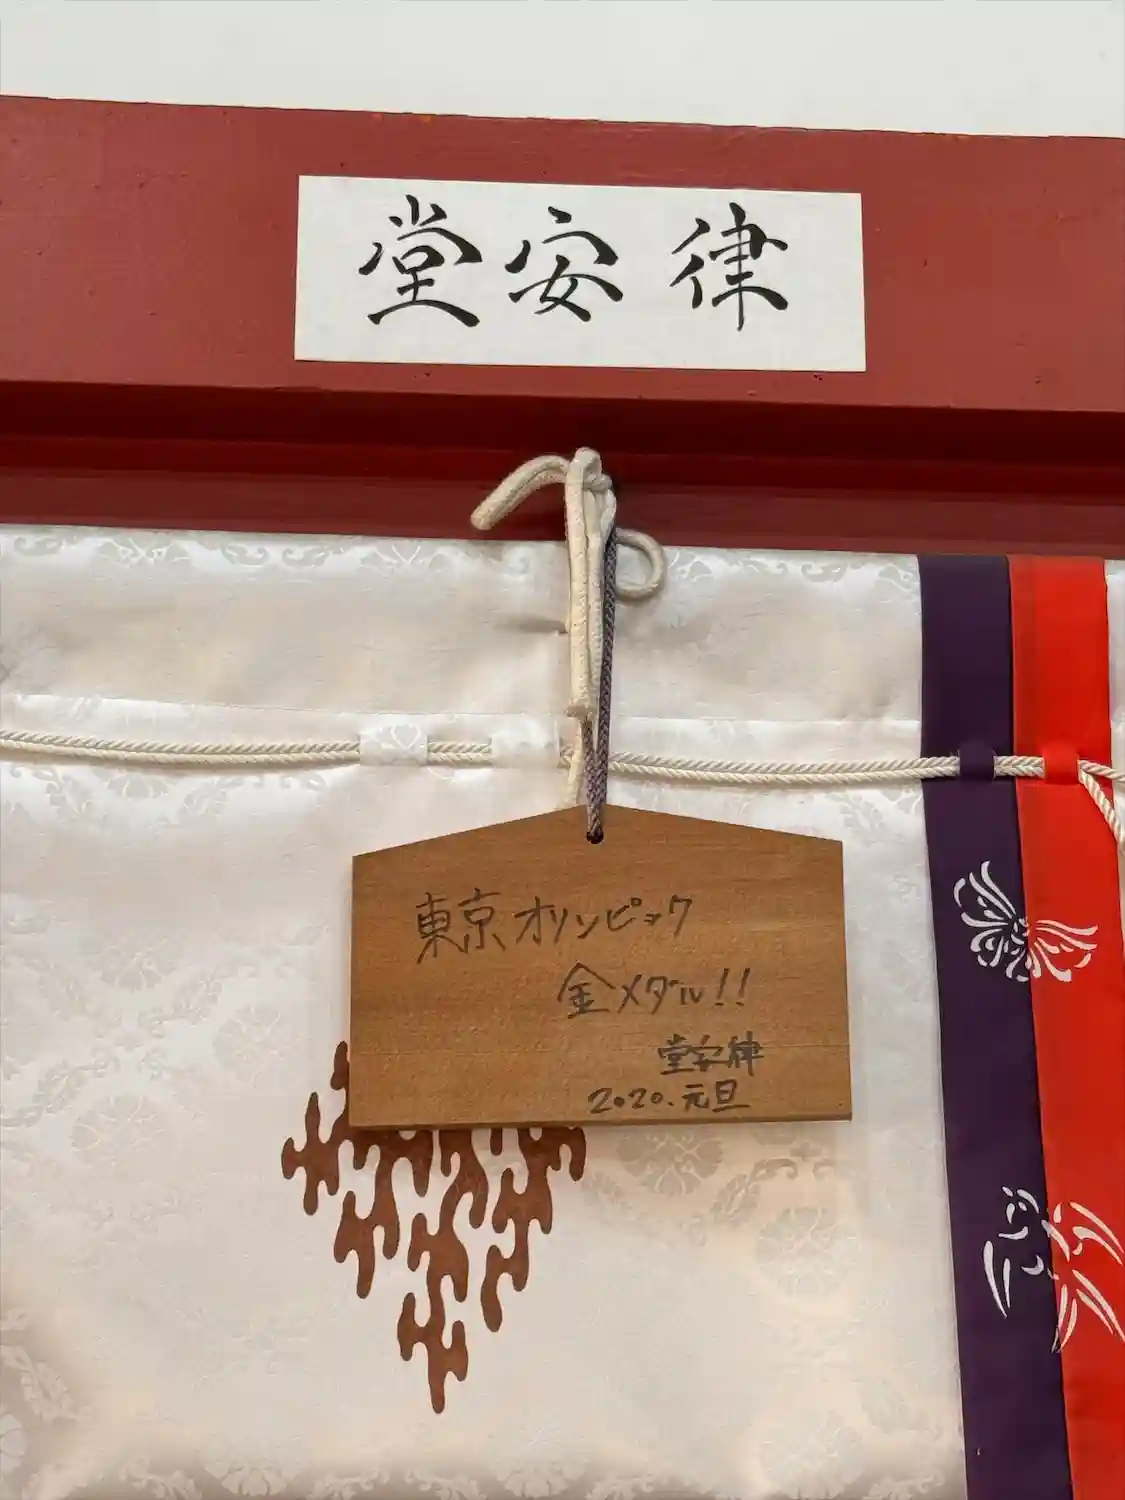 堂安 律
東京オリンピック
金メダル!!
堂安律
2020.元旦